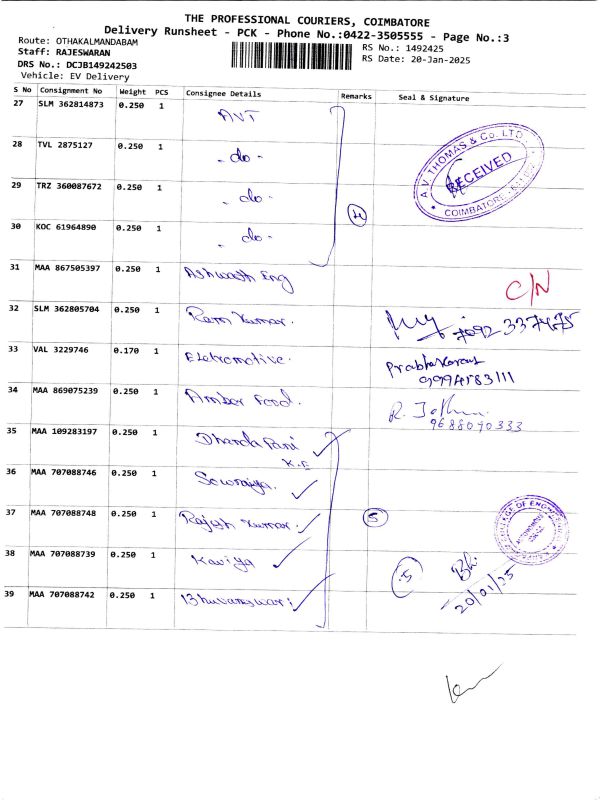 THE PROFESSIONAL COURIERS, COIMBATORE
Delivery Runsheet - PCK - Phone No.:0422-3505555 - Page No.:3
Route: OTHAKALMANDABAM
RS No.: 1492425
Staff: RAJESWARAN
RS Date: 20-Jan-2025
DRS No.: DCJB149242503
Vehicle: EV Delivery
S No Consignment No Weight PCS Consignee Details Remarks Seal & Signature
27 SLM 362814873 0.250 1 AVT
28 TVL 2875127 0.250 1 - do -
A.V. THOMAS & Co. LTD
RECEIVED
COIMBATORE
29 TRZ 360087672 0.250 1 - do -
4
30 KOC 61964890 0.250 1 - do -
31 MAA 867505397 0.250 1 Ashwath Eng C/N
32 SLM 362805704 0.250 1 Ram Kumar.
33 VAL 3229746 0.170 1 Eletromotive. Prabhakaran
9994183111
34 MAA 869075239 0.250 1 Amber Food. R.
9688090333
35 MAA 109283197 0.250 1 Dhandapani
K.E
36 MAA 707088746 0.250 1 Sowmiya.
37 MAA 707088748 0.250 1 Rajesh Kumar. 5
COLLEGE OF ENGINEERING
38 MAA 707088739 0.250 1 Kaviya 5
39 MAA 707088742 0.250 1 Bhuvaneswari 20/01/25